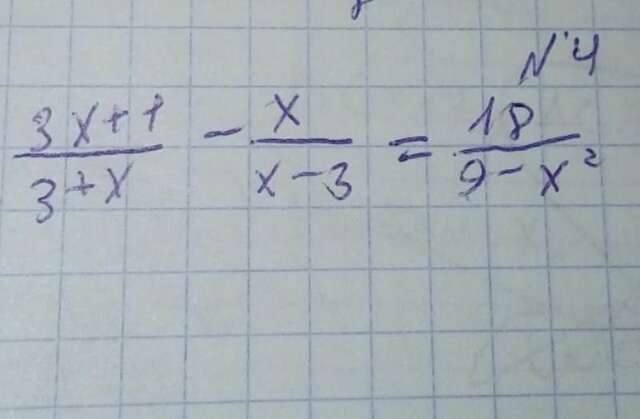 N'4
\frac{3x+1}{3+x} - \frac{x}{x-3} = \frac{18}{9-x^2}